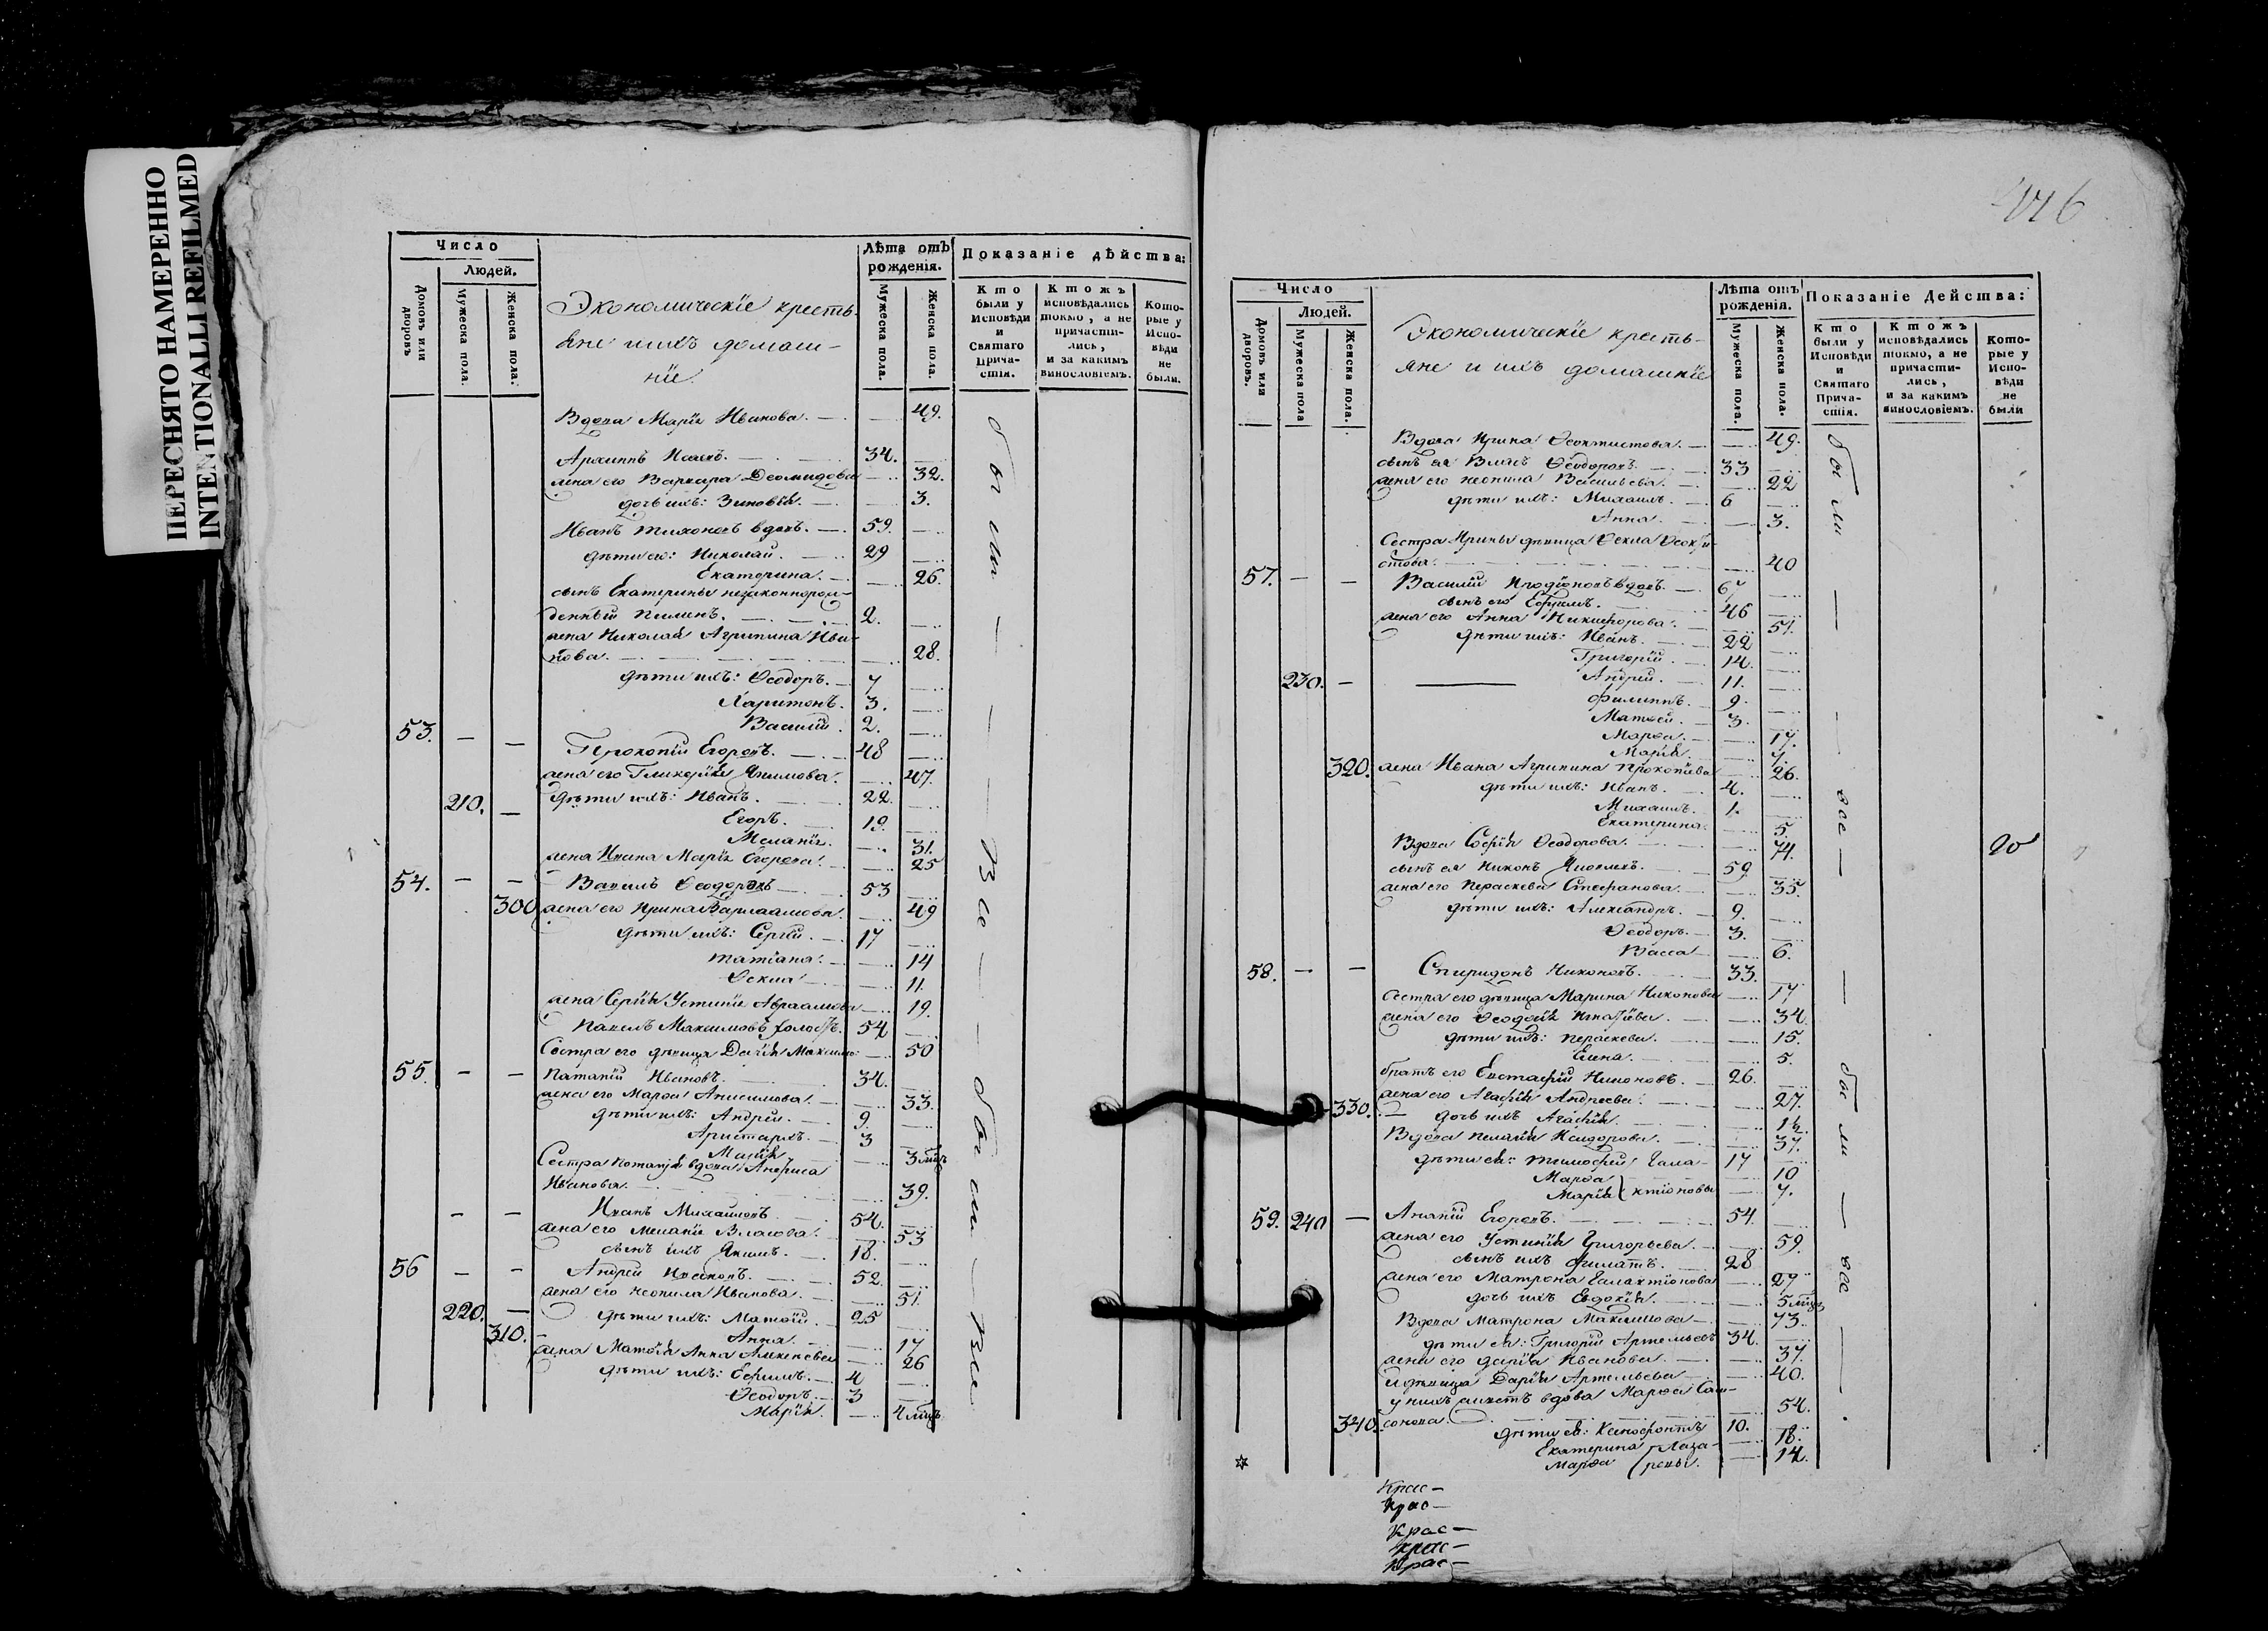 ПЕРЕСНЯТО НАМЕРЕННО
INTENTIONALLI REFILMED
Число
Людей.
Домовъ или дворовъ
Мужеска пола.
Женска пола.
Экономическiе кресть-
яне и ихъ домаш-
нiе.
Лѣта отъ рожденiя.
Мужеска пола.
Женска пола.
Показанiе дѣйства:
Кто были у Исповѣди и Святаго Прича-стiя.
Ктожъ исповѣдались токмо, а не причасти-лись, и за какимъ винословiемъ.
Кото-рые у Испо-вѣди не были.
Вдова Марiя Иванова. 49.
Архиппъ Исаевъ. 34.
жена его Варвара Деомидова 32.
дочь ихъ: Зиновiя. 3.
Иванъ Тихоновъ вдовъ. 59.
дѣти его: Николай. 29
Екатерина. 26.
сынъ Екатерины незаконнорож-
денный Пименъ. 2.
жена Николая Агрипина Ива-
нова. 28.
дѣти ихъ: Ѳеодоръ. 7
Харитонъ. 3.
Василiй. 2.
53. Прокопiй Егоровъ. 48
жена его Гликерiя Якимова. 47.
210. дѣти ихъ: Иванъ. 22.
Егоръ. 19.
Меланiя. 31.
жена Ивана Марiя Егорова. 25
54. Вавилъ Ѳеодоровъ 53
300 жена его Ирина Варлаамова. 49
дѣти ихъ: Сергiй. 17
Татiана. 14
Ѳекла 11.
жена Сергiя Устинiя Авраамова 19.
Павелъ Максимовъ холостъ. 54
Сестра его дѣвица Дарiя Максимо: 50
55. Потапiй Ивановъ. 34.
жена его Марѳа Анисимова. 33.
дѣти ихъ: Андрей. 9.
Аристархъ. 3
Марiя 3 мѣц.
Сестра Потапiя вдова
Иванова. 39.
Иванъ Михайловъ 54.
жена его Меланiя Власова. 53
сынъ ихъ Якимъ. 18.
56 Андрей Ивановъ. 52.
жена его Неонила Иванова. 51.
220. дѣти ихъ: Матѳей. 25
310. Анна. 17
жена Матѳея Анна Алексеева 26
дѣти ихъ: Ефимъ. 4
Ѳеодоръ. 3
Марiя. 4 мѣц.
были — — — Все — — были — Все
446
Число
Людей.
Домовъ или дворовъ.
Мужеска пола
Женска пола.
Экономическiе кресть-
яне и ихъ домашнiе
Лѣта отъ рожденiя.
Мужеска пола.
Женска пола.
Показанiе Действа:
Кто были у Исповѣди и Святаго Прича-стiя.
Ктожъ исповѣдались токмо, а не причасти-лись, и за какимъ винословiемъ.
Кото-рые у Испо-вѣди не были
Вдова Ирина Ѳеоктистова. 49.
сынъ ея Ѳеодоровъ. 33
жена его Неонила Васильева. 22
дѣти ихъ: Михаилъ. 6
Анна. 3.
Сестра Ирины дѣвица Ѳекла Ѳеокти-
стова. 40
57. Василiй Иродiоновъ вдовъ. 67
сынъ его Ефимъ. 46
жена его Анна Никифорова. 51.
дѣти ихъ: Иванъ. 22
Григорiй. 14.
230. Андрей. 11.
Филиппъ. 9.
Матѳей. 3.
Марѳа. 17.
Марiя. 7.
320. жена Ивана Агрипина Прокопiева 26.
дѣти ихъ: Иванъ. 4.
Михаилъ. 1.
Екатерина. 5.
Вдова Софiя Ѳеодорова. 74.
сынъ ея Никонъ 59.
жена его Параскева Стефанова. 35.
дѣти ихъ: Александръ. 9.
Ѳеодоръ. 3.
Васса 6.
58. Спиридонъ Никоновъ. 33.
Сестра его дѣвица Марина Никонова 17.
жена его Ѳеодосiя Игнатiева. 34.
дѣти ихъ: Параскева. 15.
Елена. 5.
братъ его Евстафiй Никоновъ. 26.
330. жена его Агафiя Андреева. 27.
дочь ихъ Агафiя. 1½.
Вдова Пелагiя Исидорова. 37.
дѣти ея: Тимофей Гала- 17
Марѳа 10
Марiя ктiоновы 7.
59. 240 Ананiй Егоровъ. 54.
жена его Устинiя Григорьева. 59.
сынъ ихъ Филатъ. 28
жена его Матрона Галактiонова 27
дочь ихъ Евдокiя. 5 мѣц.
Вдова Матрона Максимова 73.
дѣти ея: Григорiй Артемьевъ 34.
жена его Дарiя Иванова. 37.
и дѣвица Дарiя Артемьева 40.
у нихъ живетъ вдова Марѳа Сам-
340. сонова. 54.
дѣти ея: Ксенофонтъ 10.
Екатерина Лаза- 18.
Марѳа ревы. 14.
были — — все — — были — все
Крас-
Крас-
Крас-
Крас-
Крас-